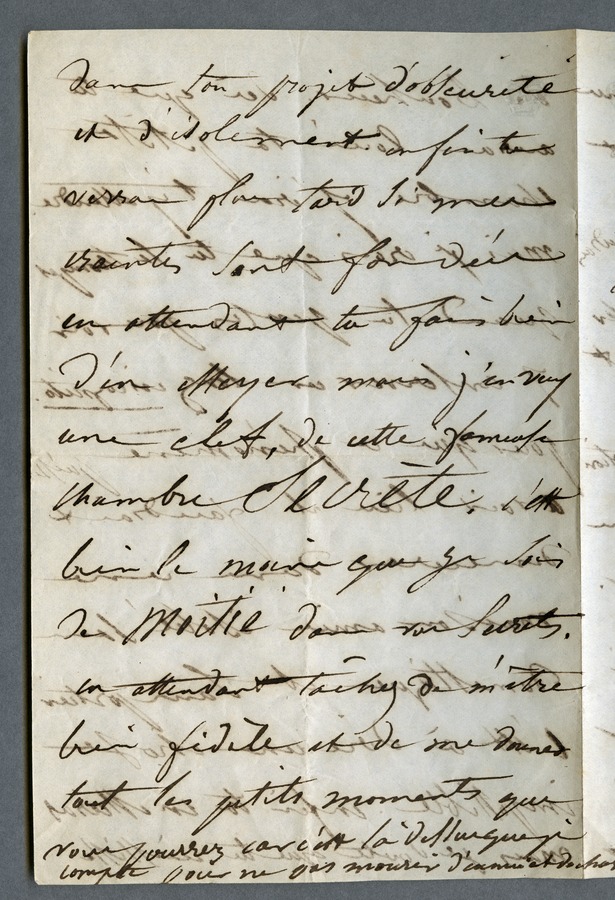 dans ton projet d'obscurité
et d'isolement enfin tu
verras plus tard si mes
craintes sont fondées
en attendant tu fais bien
d'en essayer mais j'en veux
une clef, de cette fameuse
chambre Secrète. c'est
bien le moins que je sois
de Moitié dans vos secrets.
en attendant tâchez de m'être
bien fidèle et de me donner
tout les petits moments que
vous pourrez car c'est là dessus que je
compte pour ne pas mourir d'ennui et de